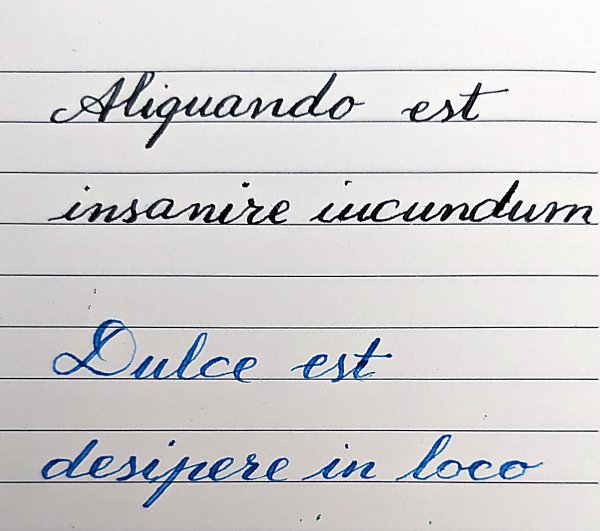 Aliquando est
insanire iucundum
Dulce est
desipere in loco